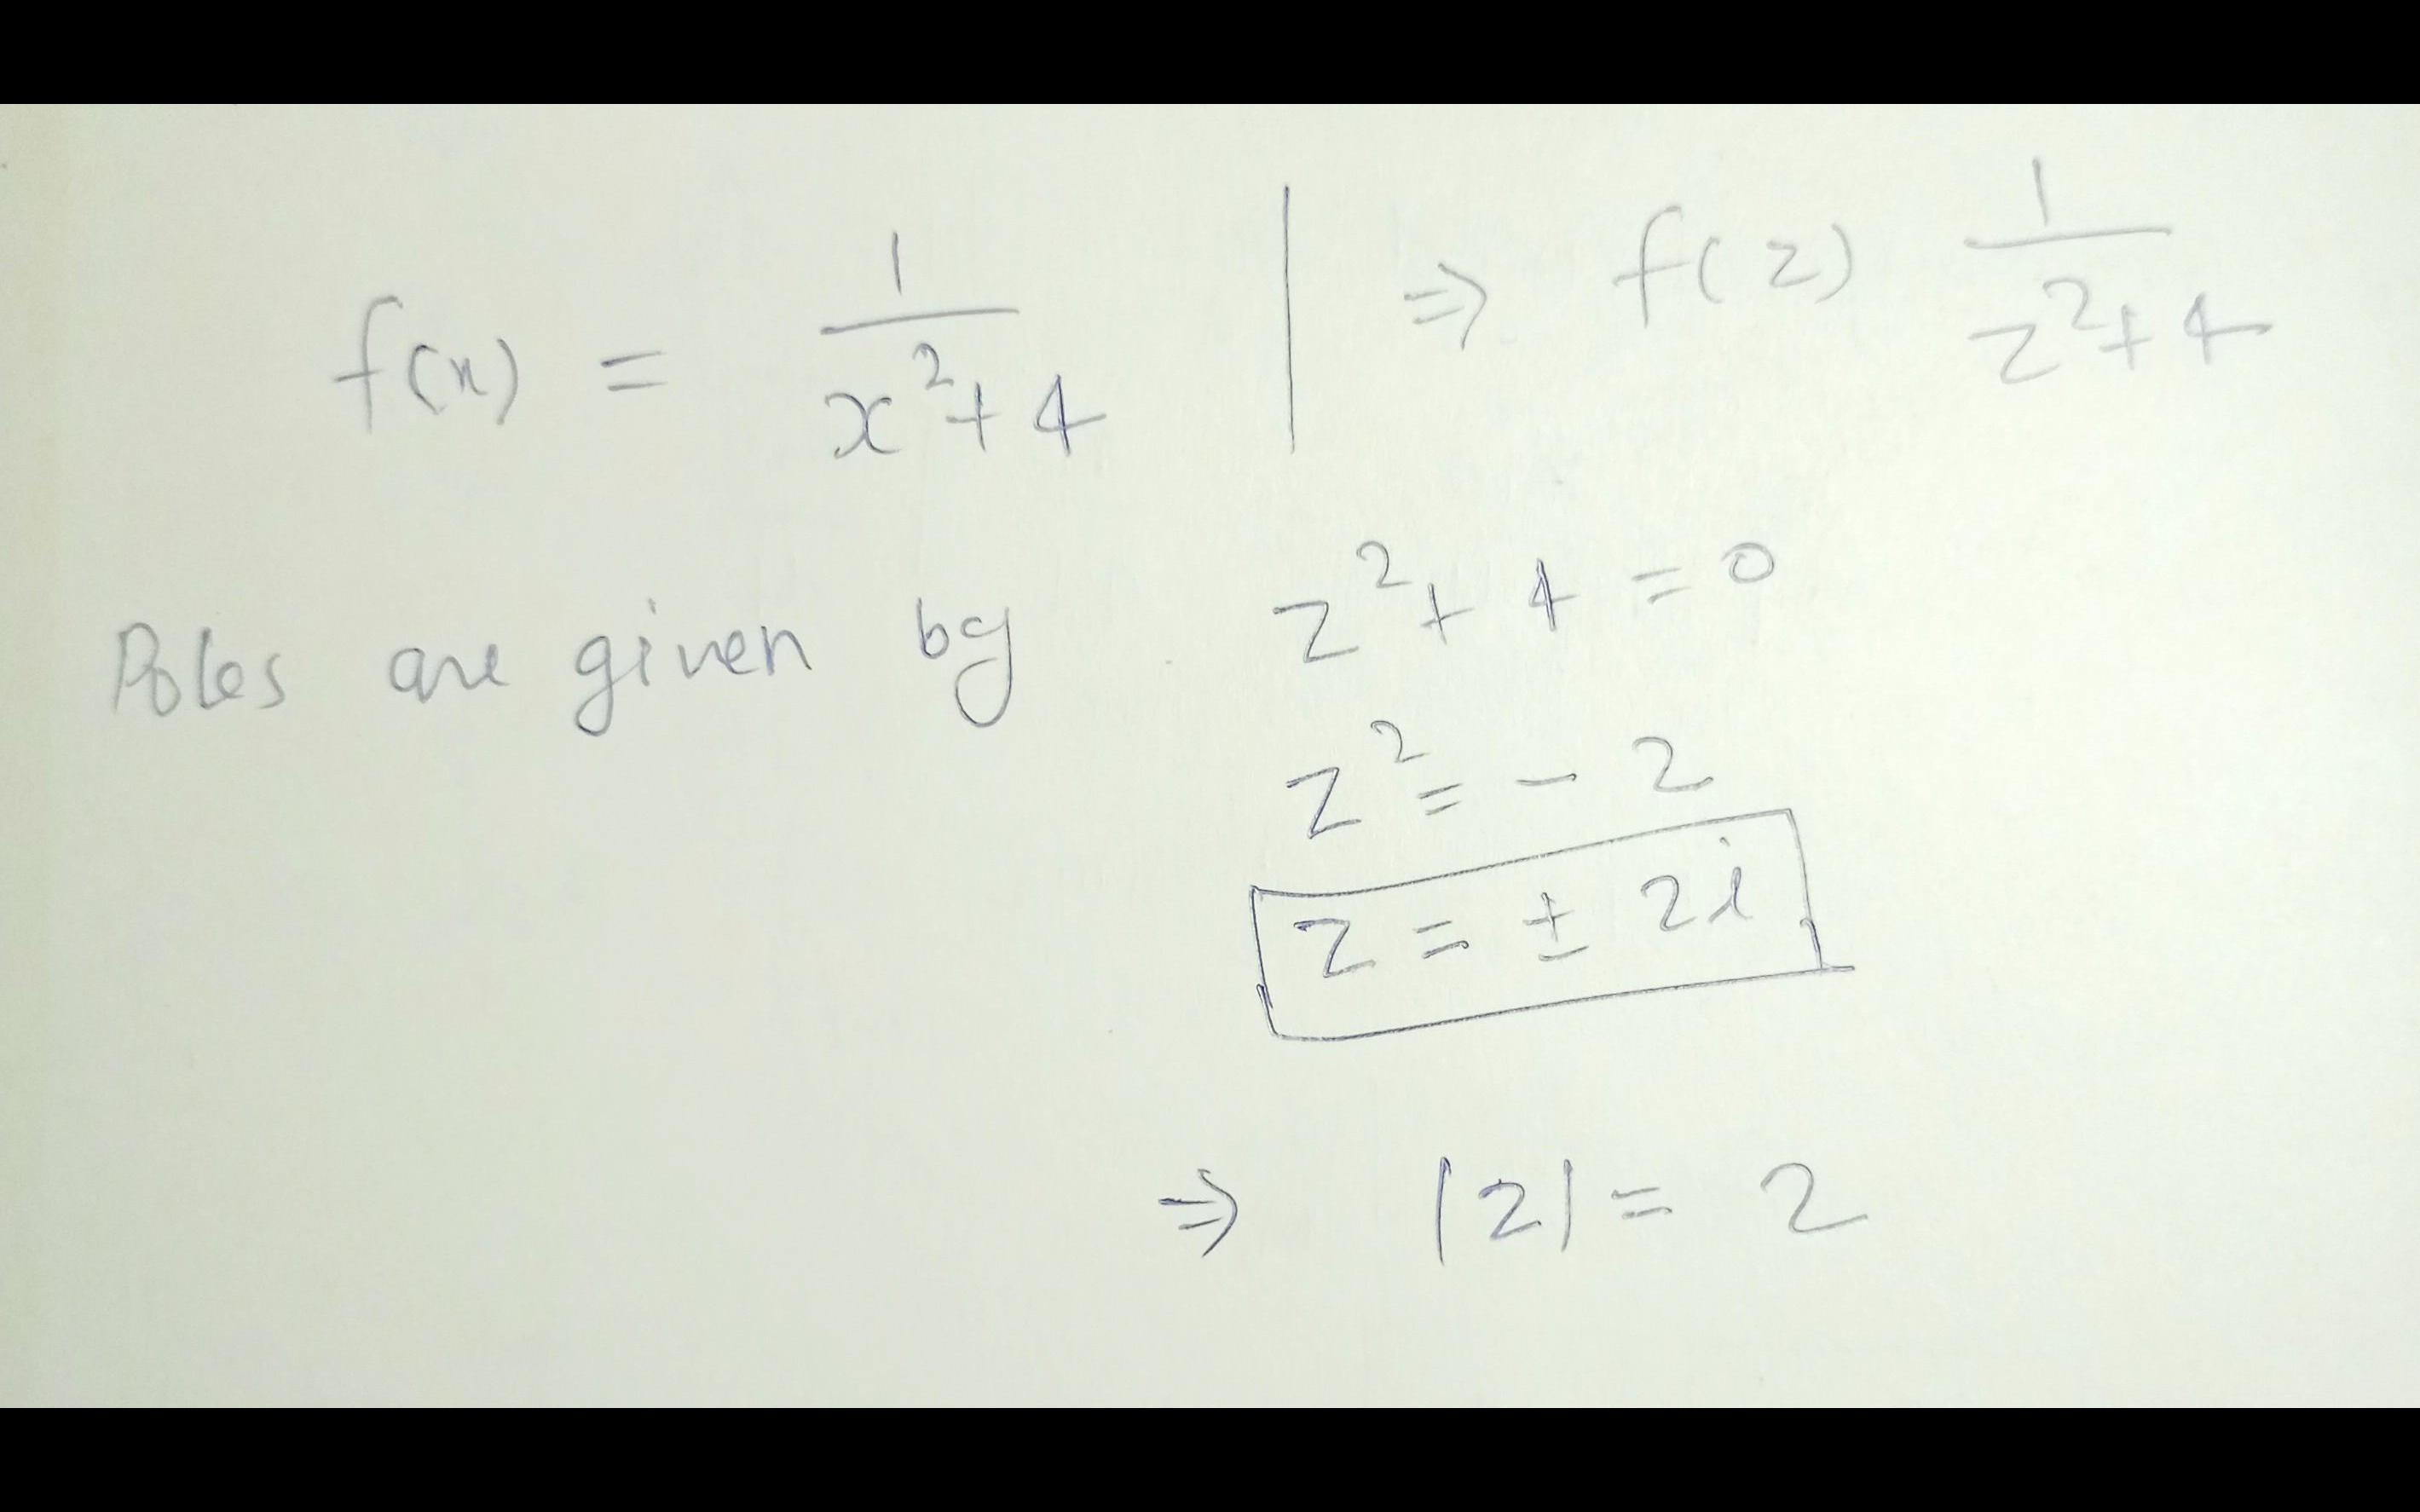 f(x) = 1/(x²+4) | ⇒ f(z) 1/(z²+4)
Poles are given by z²+4 = 0
z² = - 2
z = ± 2i
⇒ |z| = 2